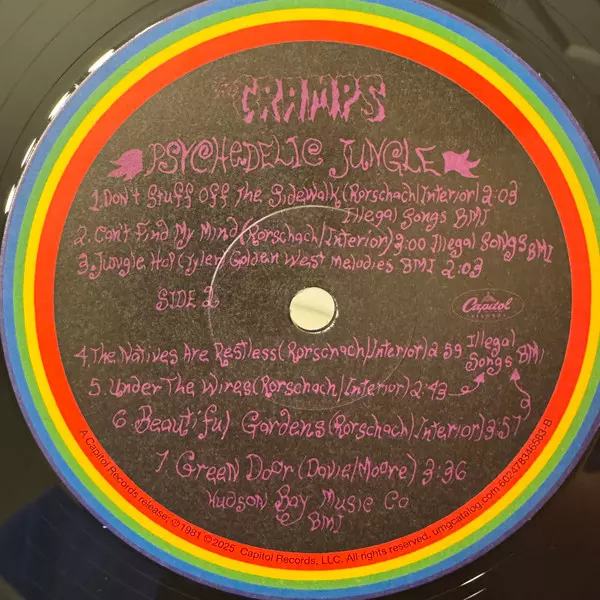 The CRAMPS
PSYCHEDELIC JUNGLE
1. Don't Stuff Off The Sidewalk (Rorschach/Interior) 2:03
Illegal Songs BMI
2. Can't Find My Mind (Rorschach/Interior) 3:00 Illegal Songs BMI
3. Jungle Hop (Tyler Golden West Melodies BMI 2:03
SIDE 2
Capitol
RECORDS
4. The Natives Are Restless (Rorschach/Interior) 2:59 Illegal Songs BMI
5. Under The Wires (Rorschach/Interior) 2:43
6. Beautiful Gardens (Rorschach/Interior) 3:57
7. Green Door (Davie/Moore) 3:36
Hudson Bay Music Co
BMI
A Capitol Records release; ℗1981 ©2025 Capitol Records, LLC. All rights reserved. umgcatalog.com 602478346583-B